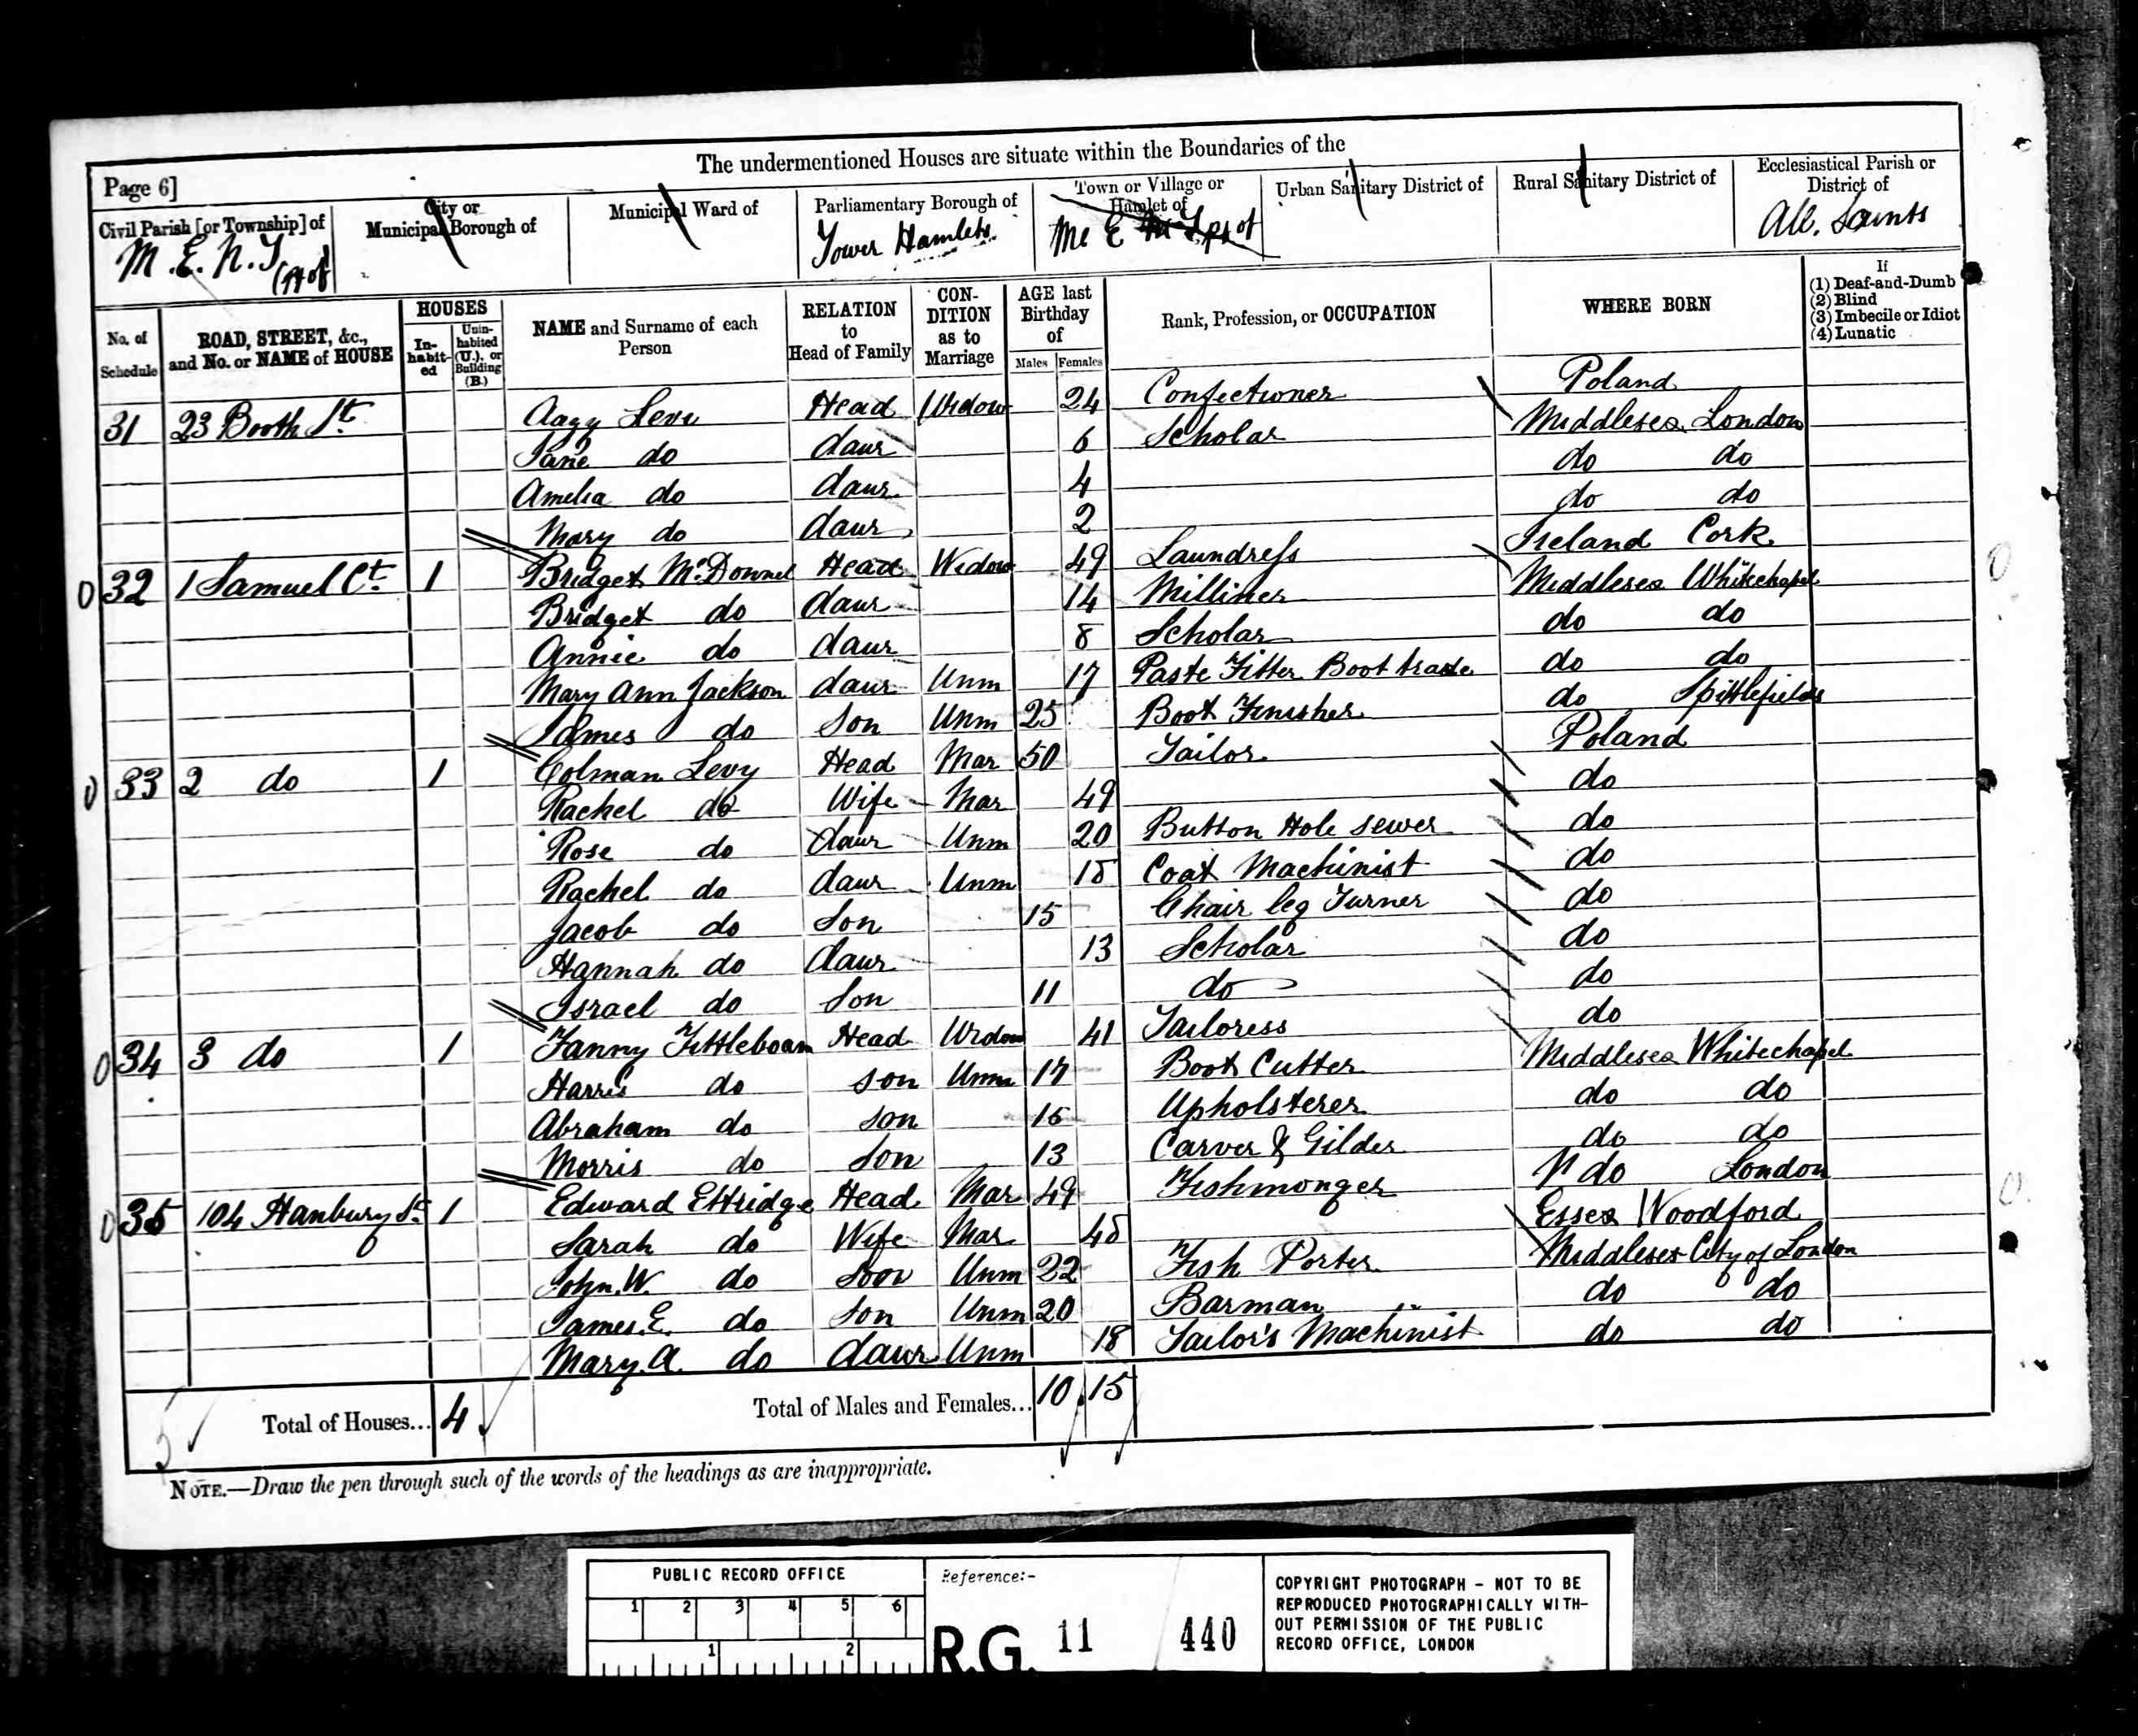 The undermentioned Houses are situate within the Boundaries of the
Page 6]
Civil Parish [or Township] of
M.E.N.T. (pt of
City or Municipal Borough of
Municipal Ward of
Parliamentary Borough of
Tower Hamlets
Town or Village or Hamlet of
Urban Sanitary District of
Rural Sanitary District of
Ecclesiastical Parish or District of
All. Saints
No. of Schedule
ROAD, STREET, &c., and No. or NAME of HOUSE
HOUSES
In-habit-ed
Unin-habited (U.), or Building (B.)
NAME and Surname of each Person
RELATION to Head of Family
CON-DITION as to Marriage
AGE last Birthday of
Males
Females
Rank, Profession, or OCCUPATION
WHERE BORN
If
(1) Deaf-and-Dumb
(2) Blind
(3) Imbecile or Idiot
(4) Lunatic
31 23 Booth St. Levi Head Widow 24 Confectioner Poland
Jane do daur 6 Scholar Middlesex London
Amelia do daur 4 do do
Mary do daur 2 do do
0 32 1 Samuel Ct. 1 Bridget McDonnel Head Widow 49 Laundress Ireland Cork
Bridget do daur 14 Milliner Middlesex Whitechapel
Annie do daur 8 Scholar do do
Mary Ann Jackson daur Unm 17 Paste Fitter Boot trade do do
James do Son Unm 25 Boot Finisher do Spittlefields
0 33 2 do 1 Colman Levy Head Mar 50 Tailor Poland
Rachel do Wife Mar 49 do
Rose do daur Unm 20 Button Hole sewer do
Rachel do daur Unm 18 Coat Machinist do
Jacob do Son 15 Chair leg Turner do
Hannah do daur 13 Scholar do
Israel do Son 11 do do
0 34 3 do 1 Fanny Tittleboam Head Widow 41 Tailoress do
Harris do son Unm 17 Boot Cutter Middlesex Whitechapel
Abraham do son 15 Upholsterer do do
Morris do Son 13 Carver & Gilder do do
0 35 104 Hanbury St. 1 Edward Ettridge Head Mar 49 Fishmonger do London
Sarah do Wife Mar 48 Essex Woodford
John. W. do Son Unm 22 Fish Porter Middlesex City of London
James. E. do Son Unm 20 Barman do do
Mary. A. do daur Unm 18 Tailor's Machinist do do
Total of Houses... 4
Total of Males and Females... 10 15
NOTE.—Draw the pen through such of the words of the headings as are inappropriate.
PUBLIC RECORD OFFICE
1 2 3 4 5 6
1 2
Reference:-
R.G. 11 440
COPYRIGHT PHOTOGRAPH - NOT TO BE
REPRODUCED PHOTOGRAPHICALLY WITH-
OUT PERMISSION OF THE PUBLIC
RECORD OFFICE, LONDON